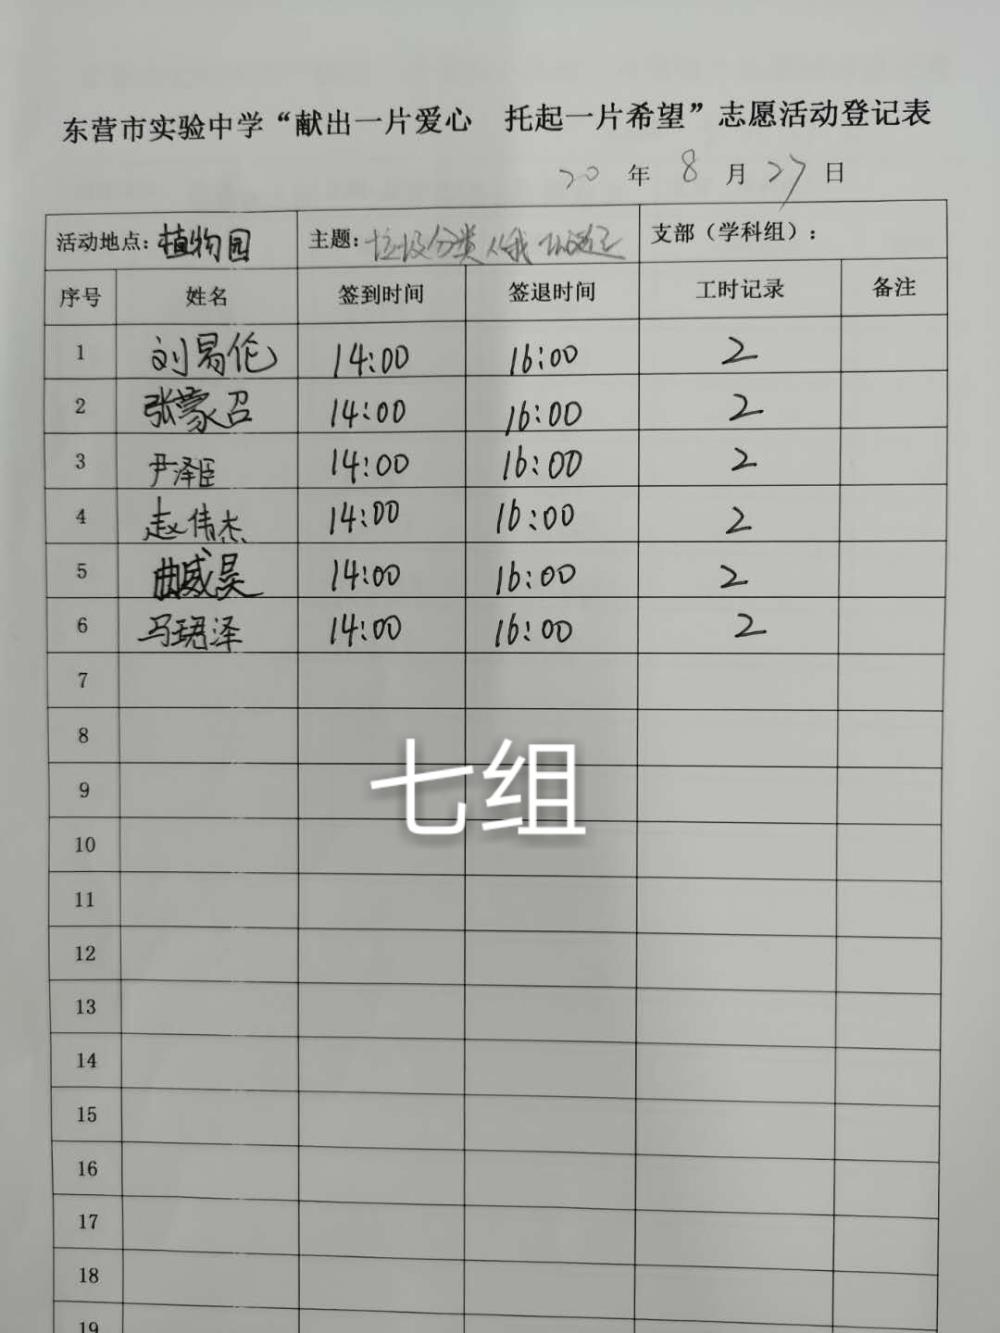 东营市实验中学“献出一片爱心 托起一片希望”志愿活动登记表
20 年 8 月 27 日
活动地点：植物园 主题：垃圾分类从我 支部（学科组）：
序号 姓名 签到时间 签退时间 工时记录 备注
1 刘易伦 14:00 16:00 2
2 张蒙召 14:00 16:00 2
3 尹泽臣 14:00 16:00 2
4 赵伟杰 14:00 16:00 2
5 曲威昊 14:00 16:00 2
6 马珺泽 14:00 16:00 2
7
8
七组
9
10
11
12
13
14
15
16
17
18
19